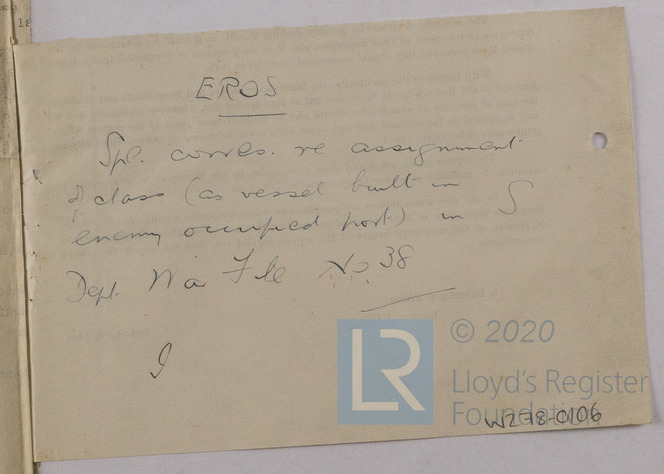 EROS
Spl. corres. re assignment
of class (as vessel built in
enemy occupied port) in S
Dept. War File No 38
LR
© 2020
Lloyd's Register
Foundation
W278-0106